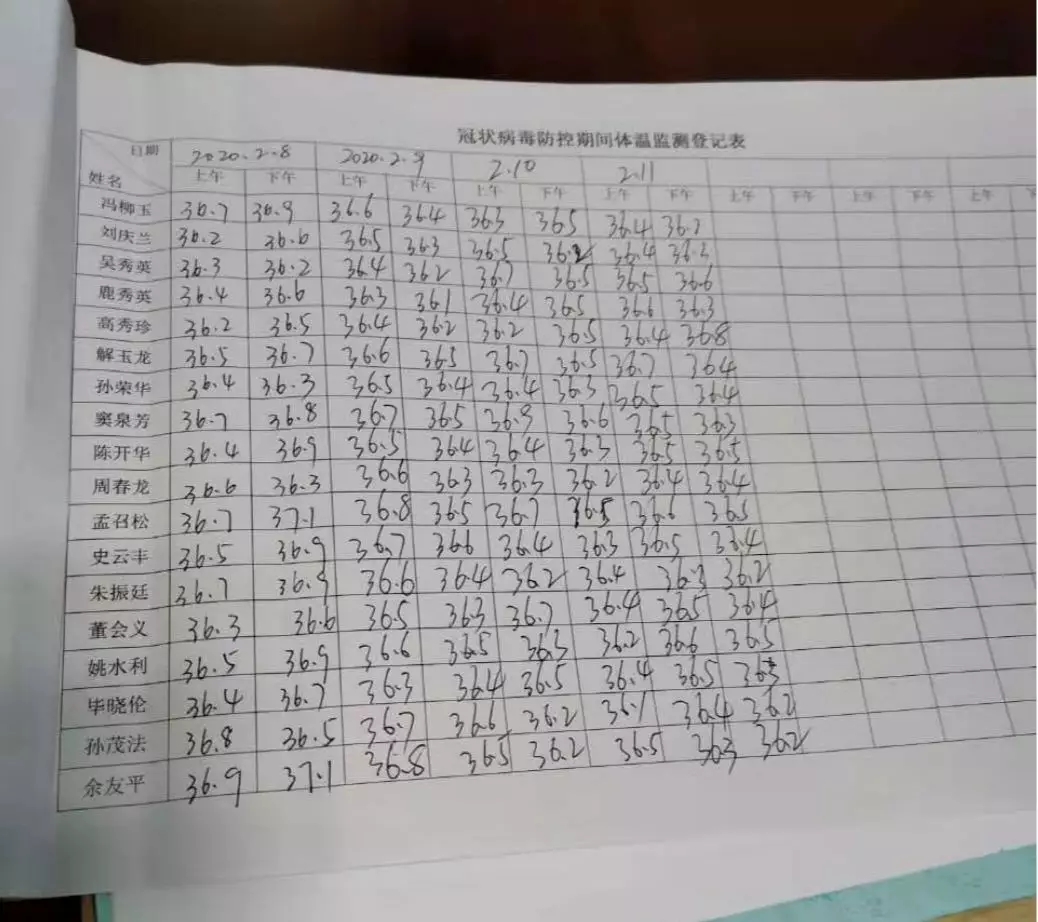 冠状病毒防控期间体温监测登记表
日期 2020.2.8 2020.2.9 2.10 2.11
姓名 上午 下午 上午 下午 上午 下午 上午 下午 上午 下午 上午 下午 上午
冯柳玉 36.7 36.9 36.6 36.4 36.3 36.5 36.4 36.2
刘庆兰 36.2 36.6 36.5 36.3 36.5 36.2 36.4 36.3
吴秀英 36.3 36.2 36.4 36.2 36.7 36.5 36.5 36.6
鹿秀英 36.4 36.6 36.3 36.1 36.4 36.5 36.6 36.3
高秀珍 36.2 36.5 36.4 36.2 36.2 36.5 36.4 36.8
解玉龙 36.5 36.7 36.6 36.5 36.7 36.5 36.7 36.4
孙荣华 36.4 36.3 36.5 36.4 36.4 36.3 36.5 36.4
窦泉芳 36.7 36.8 36.7 36.5 36.9 36.6 36.5 36.3
陈开华 36.4 36.9 36.5 36.4 36.4 36.3 36.5 36.5
周春龙 36.6 36.3 36.6 36.3 36.3 36.2 36.4 36.4
孟召松 36.7 37.1 36.8 36.5 36.7 36.5 36.6 36.5
史云丰 36.5 36.9 36.7 36.6 36.4 36.3 36.5 36.4
朱振廷 36.7 36.9 36.6 36.4 36.2 36.4 36.3 36.2
董会义 36.3 36.6 36.5 36.3 36.7 36.4 36.5 36.4
姚水利 36.5 36.9 36.6 36.5 36.3 36.2 36.6 36.5
毕晓伦 36.4 36.7 36.3 36.4 36.5 36.4 36.5 36.5
孙茂法 36.8 36.5 36.7 36.6 36.2 36.1 36.4 36.2
余友平 36.9 37.1 36.8 36.5 36.2 36.5 36.3 36.2